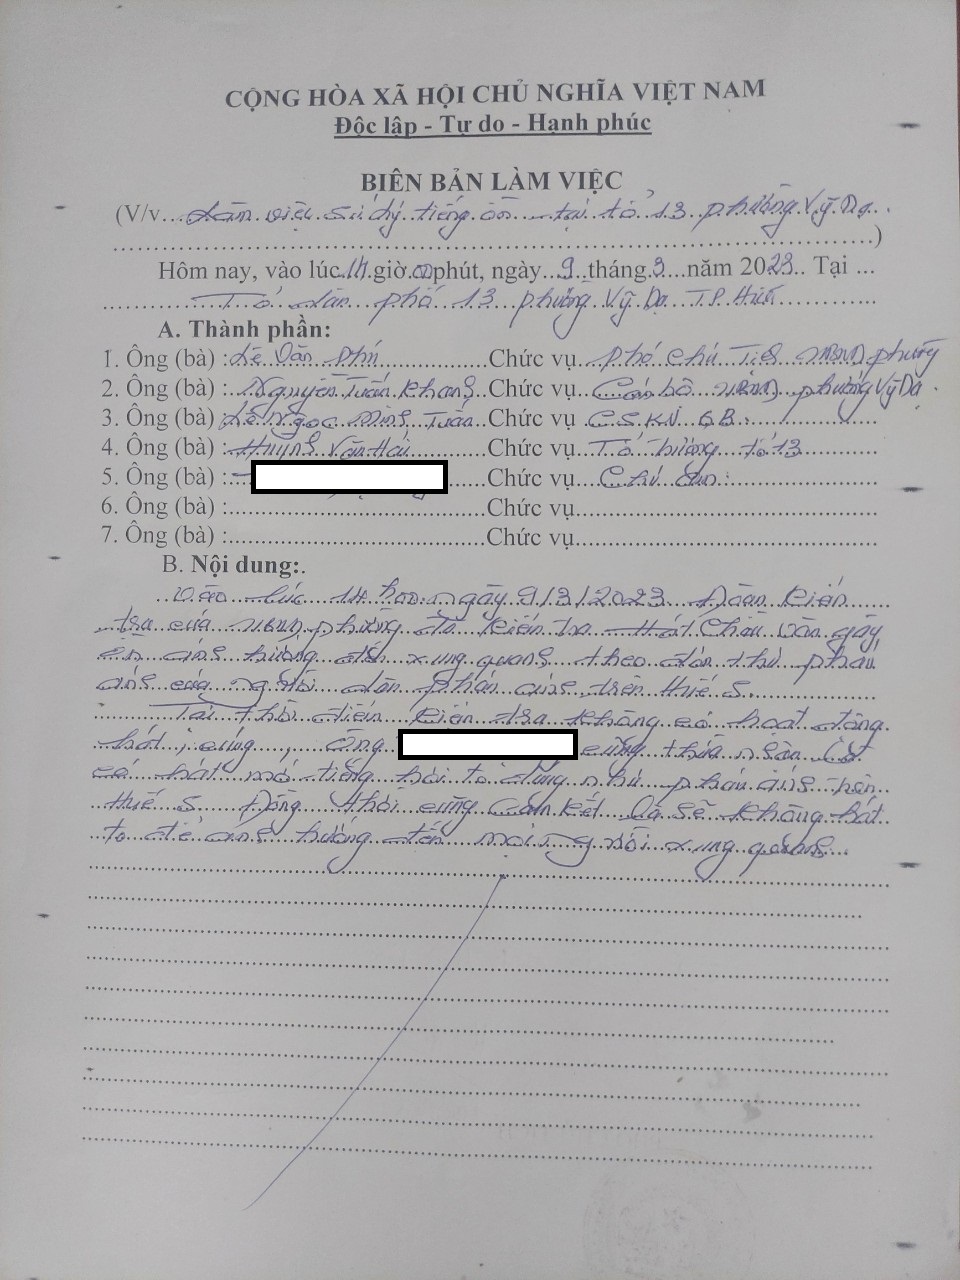 CỘNG HÒA XÃ HỘI CHỦ NGHĨA VIỆT NAM
Độc lập - Tự do - Hạnh phúc
BIÊN BẢN LÀM VIỆC
(V/v... Làm việc xử lý tiếng ồn tại tổ 13 phường Vỹ Dạ.
...)
Hôm nay, vào lúc 14 giờ 00 phút, ngày 9 tháng 3 năm 2023.. Tại ...
Tổ dân phố 13 phường Vỹ Dạ TP Huế
A. Thành phần:
1. Ông (bà) : Lê Văn Phú Chức vụ Phó Chủ Tịch UBND phường
2. Ông (bà) : Nguyễn Tuấn Khang Chức vụ Cán bộ UBND phường Vỹ Dạ.
3. Ông (bà) Lê Ngọc Minh Tuấn Chức vụ CSKV 6B
4. Ông (bà) : Huỳnh Văn Hải Chức vụ Tổ trưởng tổ 13
5. Ông (bà) : Chức vụ
6. Ông (bà) : Chức vụ
7. Ông (bà) : Chức vụ
B. Nội dung:.
Vào lúc 14h00 ngày 9/3/2023 Đoàn kiểm
tra của UBND phường đã kiểm tra Hát Chầu văn gây
ồn ảnh hưởng đến xung quanh theo đơn thư phản
ánh của người dân phản ánh trên Huế S.
Tại thời điểm kiểm tra không có hoạt động
hát, cúng, ông cũng thừa nhận
có hát mở tiếng hơi to đúng như phản ánh trên
Huế S. Đồng thời cũng cam kết là sẽ không hát
to để ảnh hưởng đến mọi người xung quanh